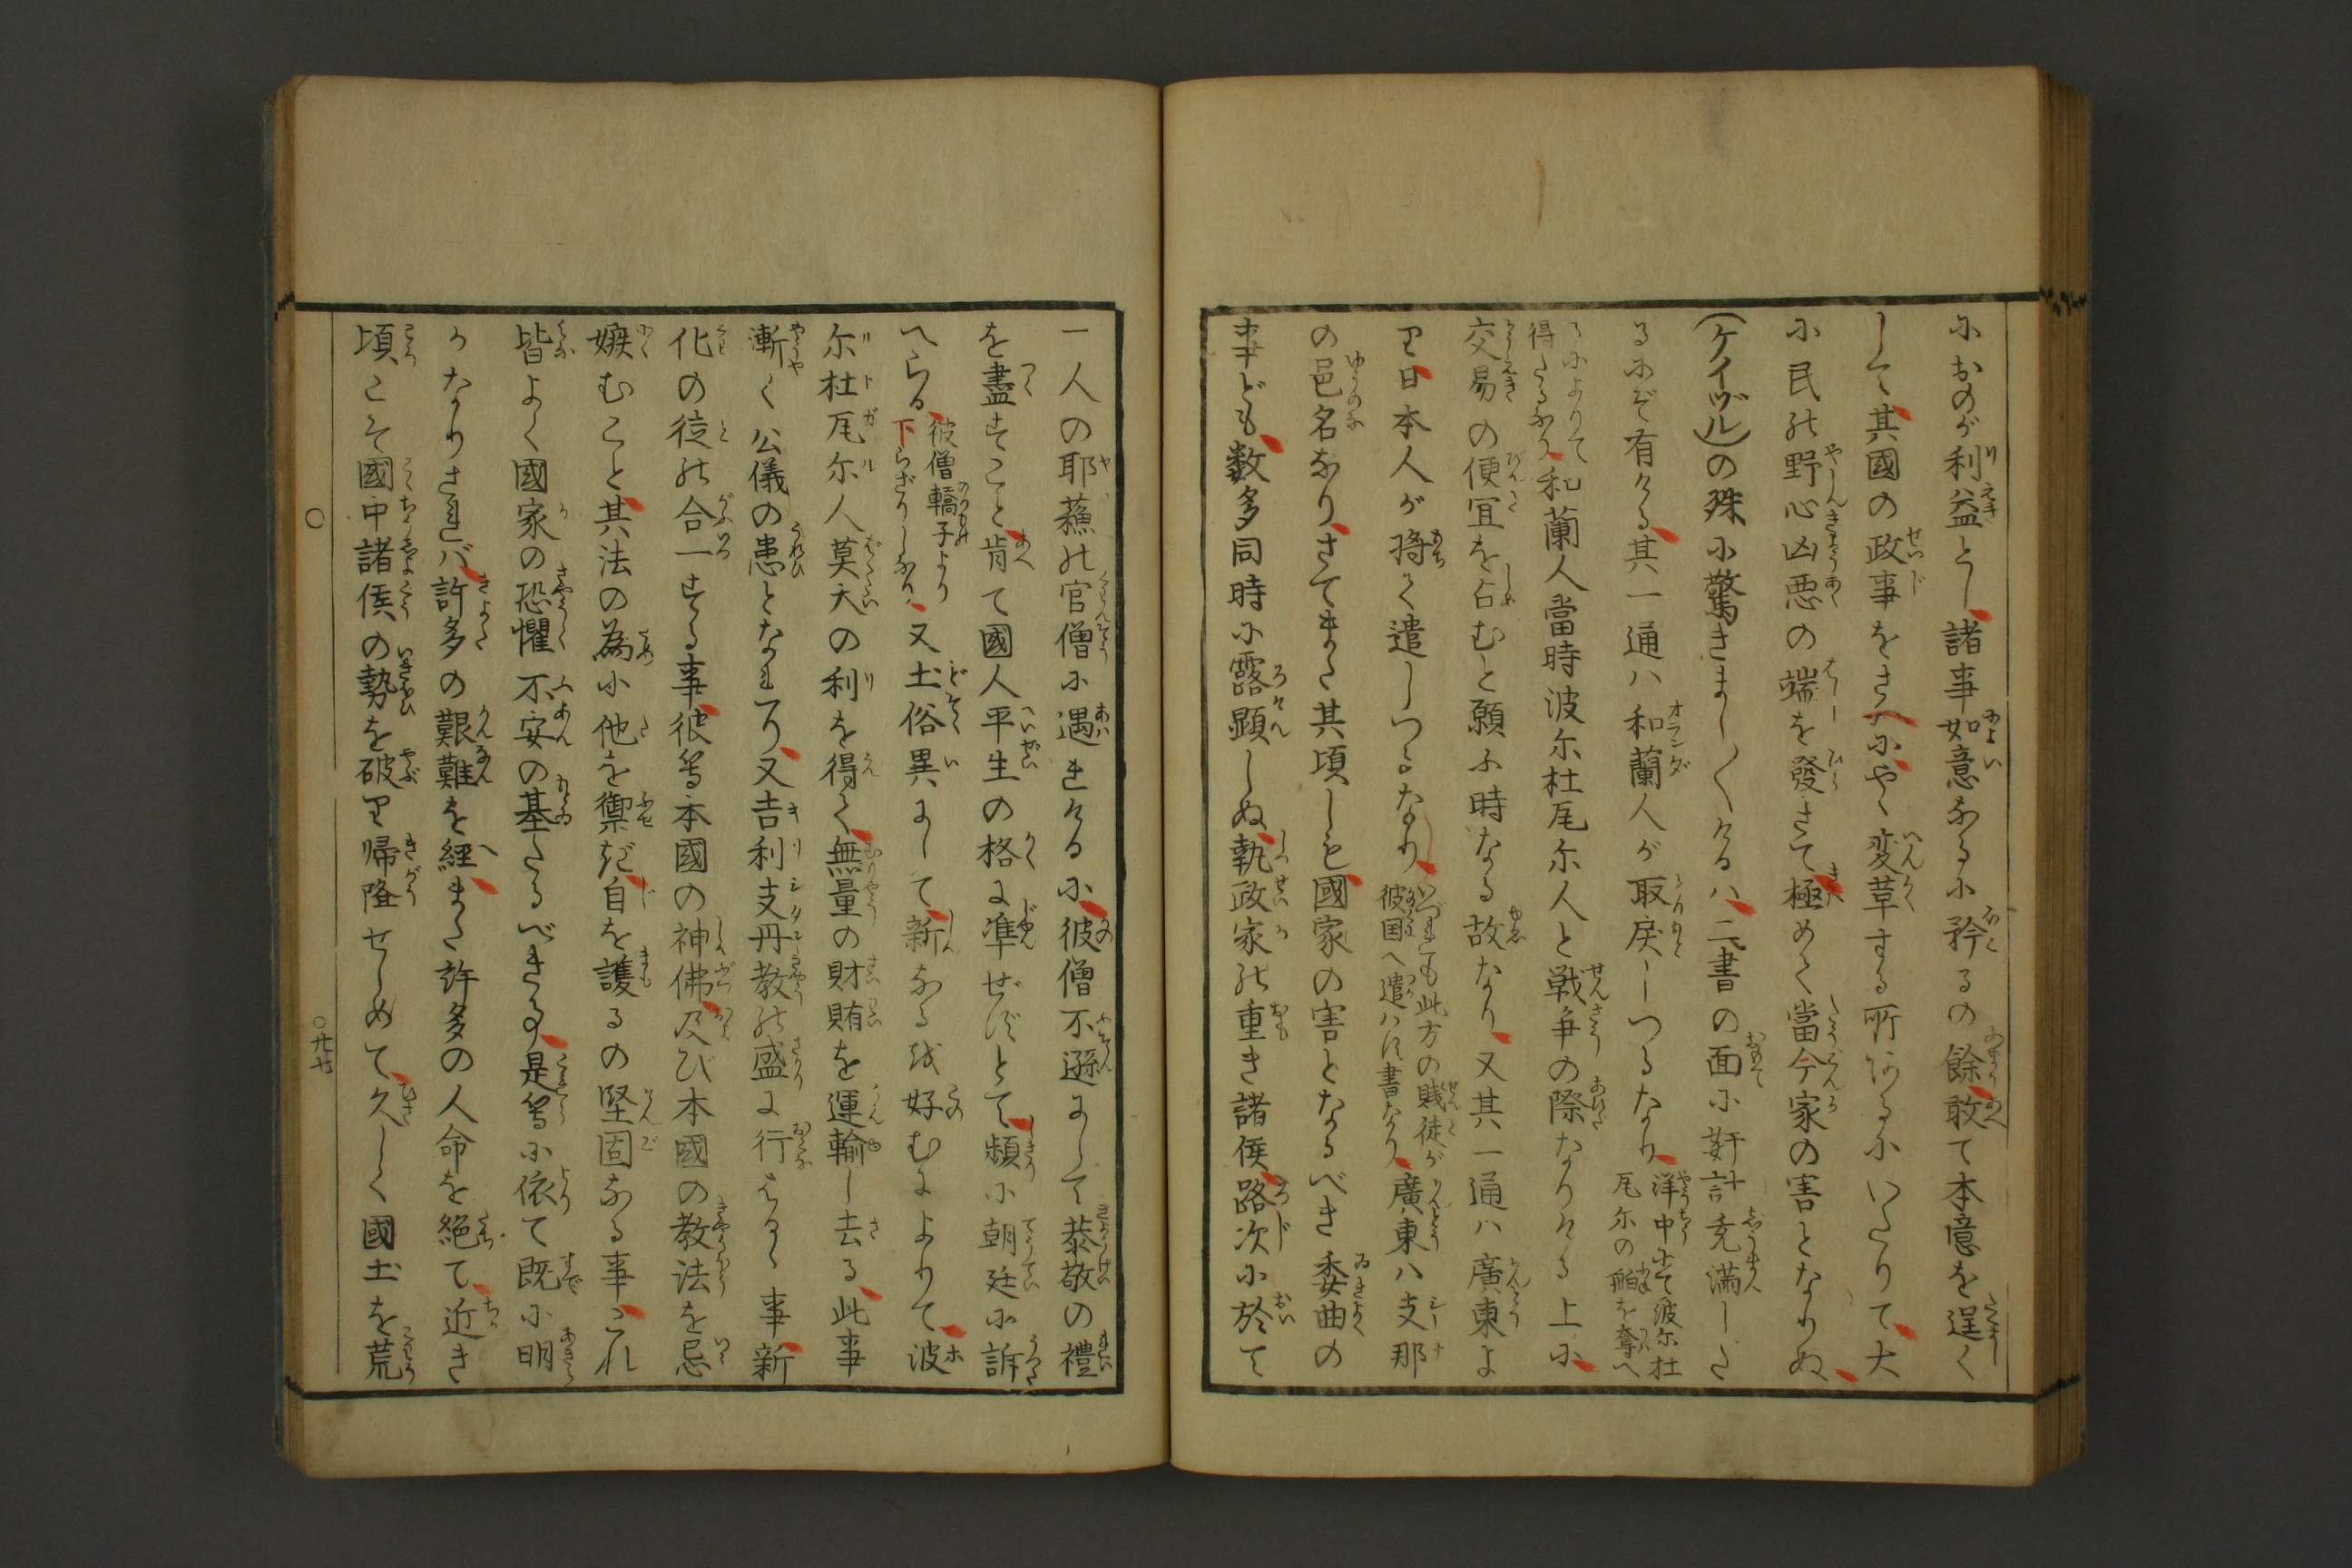 におのが利益とし諸事如意なるに矜るの餘敢て本意を逞く
して其國の政事をさへにやゝ変革する所あるにいたりて大
に民の野心凶悪の端を發きて極めて當今家の害となりぬ
(ケイヅル)の殊に驚きましくけるハ二書の面に姧計充満した
るにぞ有ける其一通ハ和蘭人が取戻しつるなり洋中にて波尓杜
瓦尓の舶を奪へ
るによりて
得たるなり和蘭人當時波尓杜瓦尓人と戦争の際なりける上に
交易の便宜を占むと願ふ時なる故なり又其一通ハ廣東よ
り日本人が持て遣しつるなりいづれも此方の賤徒が
彼国へ遣ハす書なり廣東ハ支那
の邑名なりさてまた其頃しも國家の害となるべき委曲の
事ども数多同時に露顕しぬ執政家の重き諸侯路次に於て
一人の耶蘓の官僧に遇れけるに彼僧不遜にして恭敬の禮
を盡すこと肯て國人平生の格に凖ぜずとて頻に朝廷に訴
へらる彼僧轎子より
下らざりしなり又土俗異にして新なるを好むによりて波
尓杜瓦尓人莫大の利を得て無量の財賄を運輸し去る此事
漸く公儀の患となれり又吉利支丹教の盛に行はるゝ事新
化の徒の合一する事彼等本國の神佛及び本國の教法を忌
嫉むこと其法の為に他を禦ぎ自を護るの堅固なる事これ
皆よく國家の恐懼不安の基たるべき事是等に依て既に明
かなりされバ許多の艱難を経また許多の人命を絶て近き
頃こそ國中諸侯の勢を破り帰降せしめて久しく國土を荒
○
○廿七